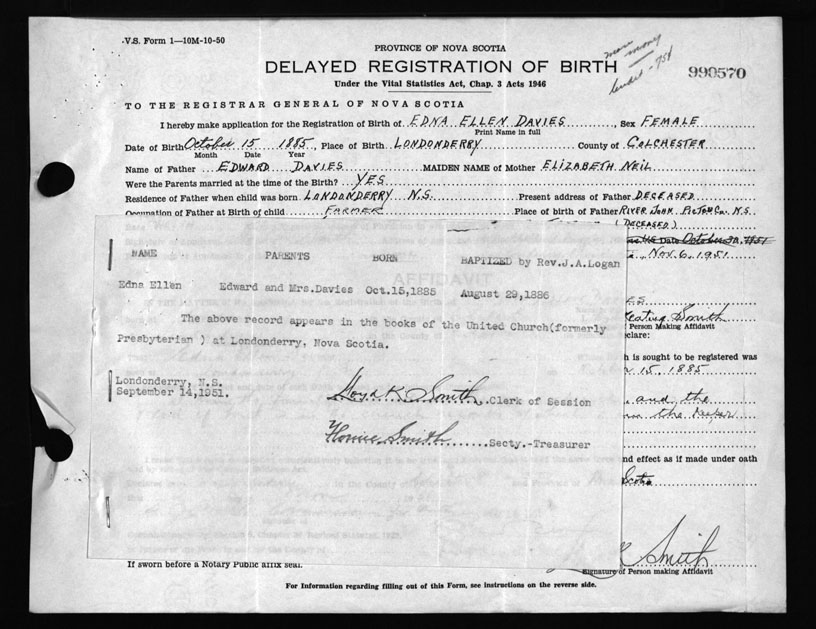 V.S. Form 1—10M-10-50
PROVINCE OF NOVA SCOTIA
DELAYED REGISTRATION OF BIRTH
more money
Under the Vital Statistics Act, Chap. 3 Acts 1946
990570
TO THE REGISTRAR GENERAL OF NOVA SCOTIA
I hereby make application for the Registration of Birth of EDNA ELLEN DAVIES, Sex FEMALE
Print Name in full
Date of Birth October 15 1885, Place of Birth LONDONDERRY County of COLCHESTER
Month Date Year
Name of Father EDWARD DAVIES MAIDEN NAME of Mother ELIZABETH NEIL
Were the Parents married at the time of the Birth? YES
Residence of Father when child was born LONDONDERRY N.S. Present address of Father DECEASED
Occupation of Father at Birth of child FARMER Place of birth of Father RIVER JOHN PICTOU Co. N.S.
(DECEASED)
Date October 30, 1951
Nov. 6, 1951
AFFIDAVIT
NAME PARENTS BORN BAPTIZED by Rev.J.A.Logan
Edna Ellen Edward and Mrs.Davies Oct.15,1885 August 29,1886
The above record appears in the books of the United Church(formerly
Presbyterian ) at Londonderry, Nova Scotia.
Londonderry, N.S.
September 14,1951.
Lloyd K. Smith .Clerk of Session
Smith .Secty.-Treasurer
Keating Smith
Person Making Affidavit
eclare:
h is sought to be registered was
15 1885
and the
in the keeper
nd effect as if made under oath
Scotia
Smith
If sworn before a Notary Public affix seal.
Signature of Person making Affidavit
For Information regarding filling out of this Form, see instructions on the reverse side.